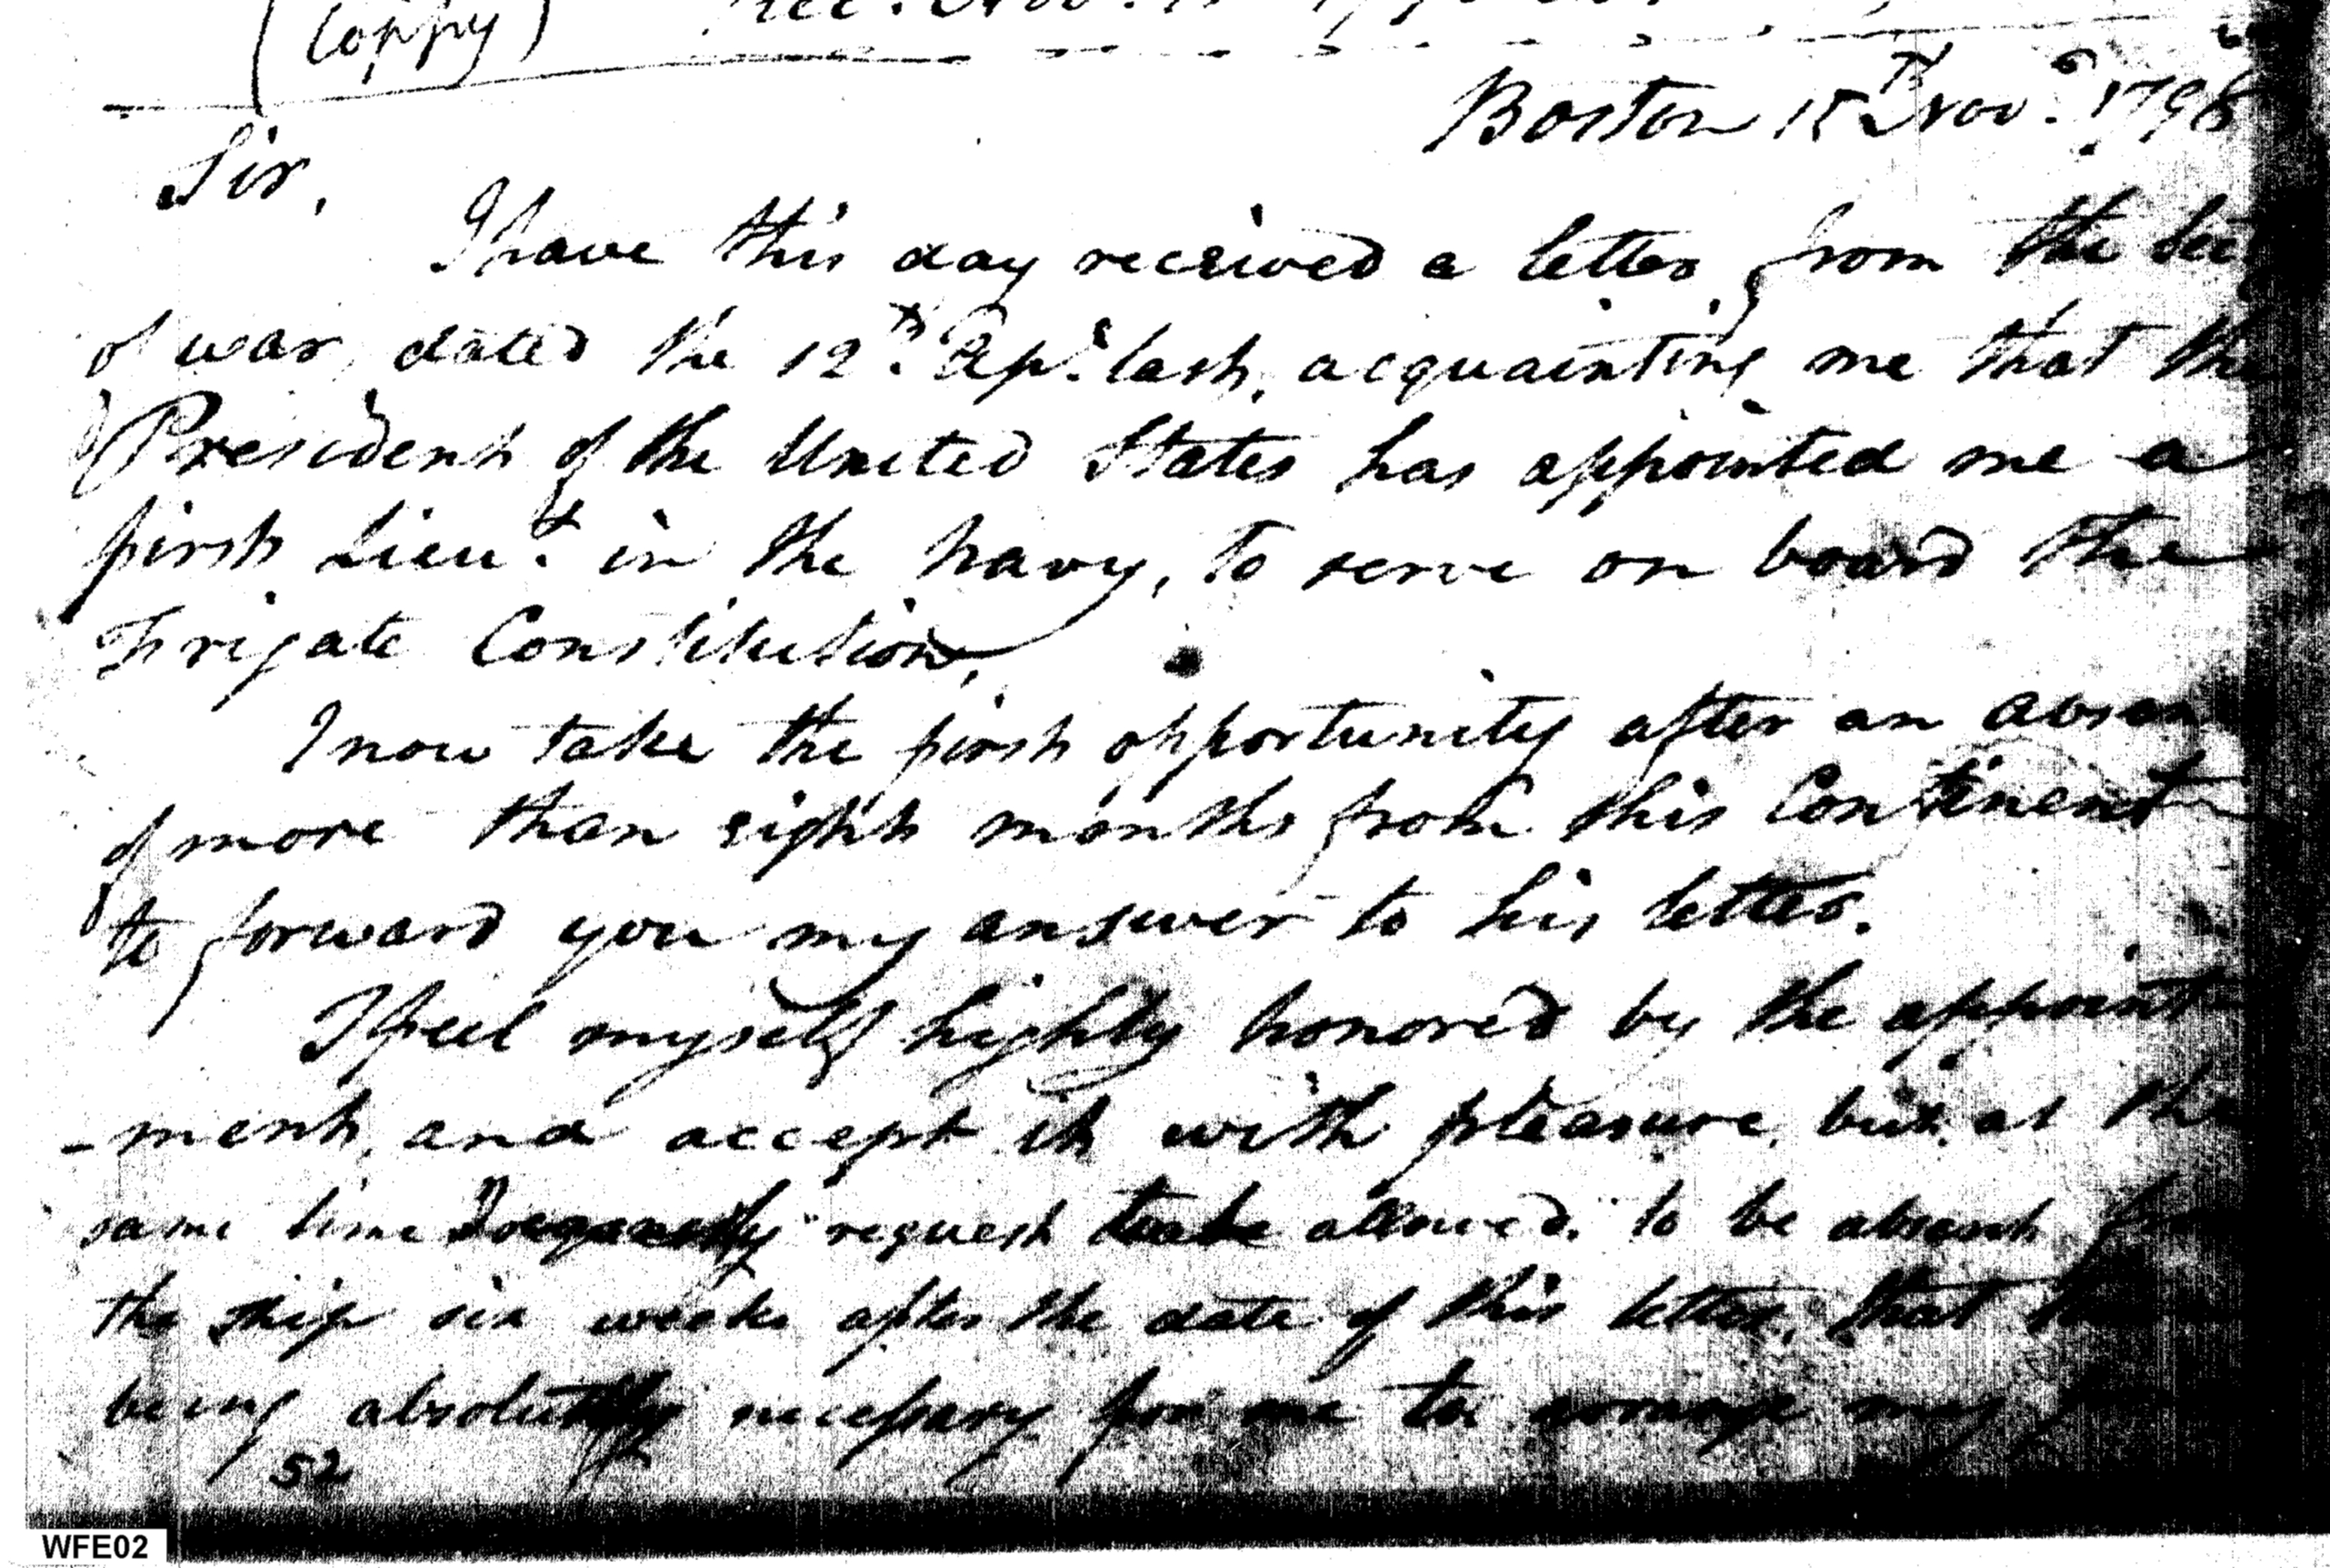 (Coppy)
Boston 15th Novr. 1798
Sir,
I have this day received a letter from the Sec
of war, dated the 12th. Apl. last, acquainting me that the
President of the United States has appointed me a
first Lieut. in the Navy, to serve on board the
Frigate Constitution.
I now take the first opportunity after an absen
of more than eight months from this Continent
to forward you my answer to his letter.
I feel myself highly honored by the appoint
-ment, and accept it with pleasure, but at the
same time request allowed to be absent from
the ship six weeks after the date of this letter, that
being absolutely necessary for me to arrange my
52
WFE02